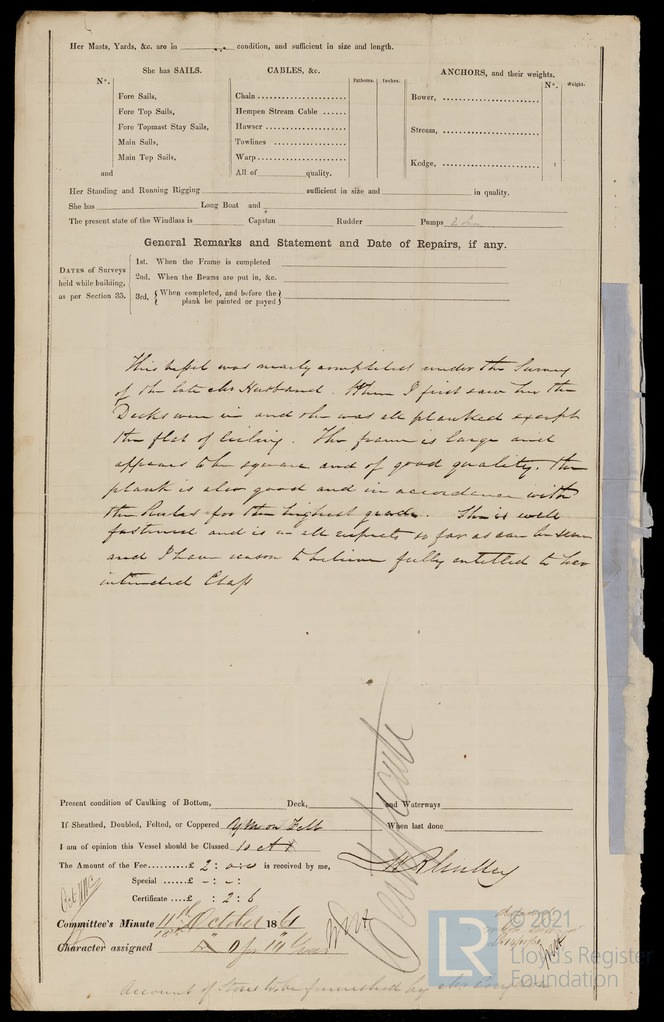 Her Masts, Yards, &c. are in condition, and sufficient in size and length.
She has SAILS.
CABLES, &c.
Fathoms.
Inches.
ANCHORS, and their weights.
N°.
N°.
Weight.
Fore Sails,
Chain
Bower,
Fore Top Sails,
Hempen Stream Cable
Fore Topmast Stay Sails,
Hawser
Stream,
Main Sails,
Towlines
Main Top Sails,
Warp
Kedge,
and
All of quality.
Her Standing and Running Rigging sufficient in size and in quality.
She has Long Boat and
The present state of the Windlass is Capstan Rudder Pumps
General Remarks and Statement and Date of Repairs, if any.
DATES of Surveys held while building, as per Section 35.
1st. When the Frame is completed
2nd. When the Beams are put in, &c.
3rd, { When completed, and before the plank be painted or payed }
This vessel was nearly completed under the Survey
of the late Mr Husband. When I first saw her the
Decks were in and she was all planked except
the flat of Ceiling. The frame is large and
appears to be square and of good quality. The
plank is also good and in accordance with
the Rules for the highest grade. She is well
fastened and is in all respects so far as can be seen
and I have reason to believe fully entitled to her
intended Class
Present condition of Caulking of Bottom, Deck, and Waterways
If Sheathed, Doubled, Felted, or Coppered Felt When last done
I am of opinion this Vessel should be Classed 10 A 1
The Amount of the Fee £ 2 : 0 : 0 is received by me,
Special £ - : - :
Certificate £ : 2 : 6
Certificate
Committee's Minute 11th October 1861
Character assigned
Account of Stores to be furnished by
© 2021
LR
Lloyd's Register
Foundation